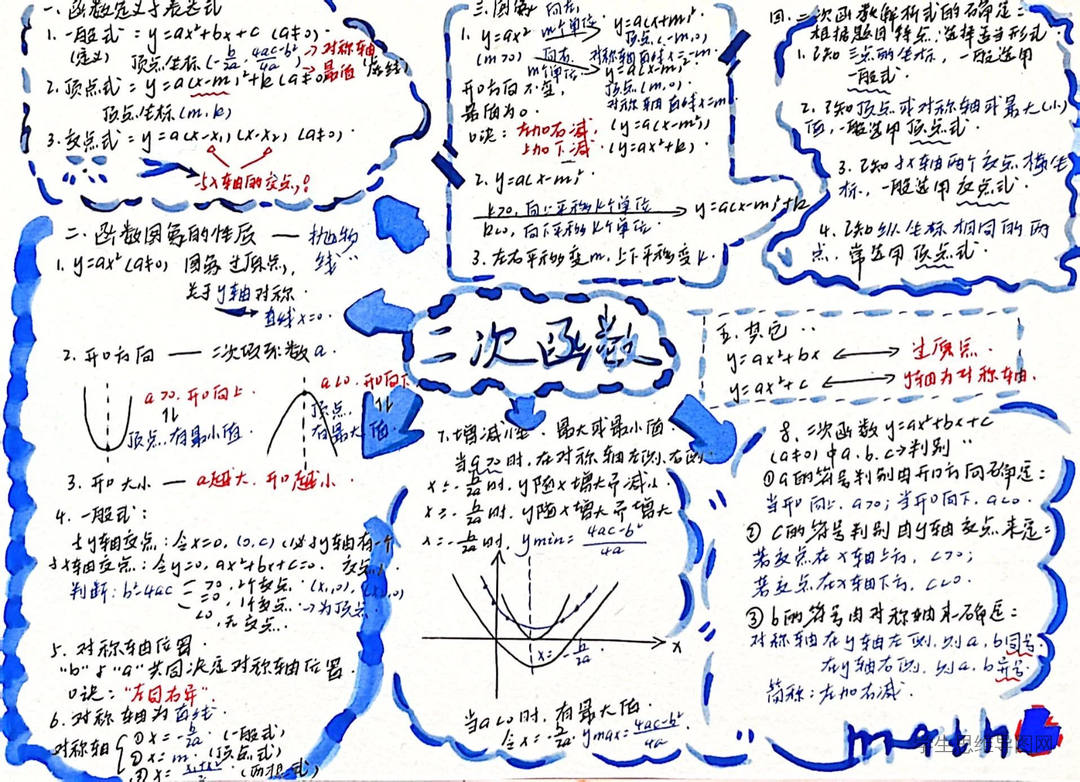 一. 函数定义与表达式
1. 一般式: y=ax²+bx+c (a≠0).
(定义) 顶点坐标(-b/2a, 4ac-b²/4a) → 对称轴 → 最值
2. 顶点式: y=a(x-m)²+k (a≠0)
顶点坐标(m,k)
3. 交点式: y=a(x-x₁)(x-x₂) (a≠0).
与x轴的交点
二. 函数图象的性质 — 抛物线
1. y=ax² (a≠0) 图象过原点,
关于y轴对称.
直线x=0.
2. 开口方向 — 二次项系数a.
a>0. 开口向上.
顶点, 有最小值.
a<0. 开口向下
顶点, 有最大值.
3. 开口大小 — a越大, 开口越小.
4. 一般式:
与y轴交点: 令x=0, (0,c)
与x轴交点: 令y=0, ax²+bx+c=0.
判断: b²-4ac >0,
=0, 1个交点 → 为顶点
<0, 无交点.
5. 对称轴位置.
"b"与"a"共同决定对称轴位置.
口诀: "左同右异".
6. 对称轴为直线.
对称轴 ① x=-b/2a. (一般式)
② x=m (顶点式)
③ x=x₁+x₂/2
三. 图象
1. y=ax² 向左 m个单位 y=a(x+m)²
(m>0) 顶点(-m,0)
对称轴直线x=-m.
向右 m个单位 y=a(x-m)²
顶点(m,0)
对称轴直线x=m.
开口方向不变,
最值为0.
口诀: 左加右减, (y=a(x-m)²)
上加下减. (y=ax²+k)
2. y=a(x-m)².
k>0, 向上平移k个单位
k<0, 向下平移k个单位.
y=a(x-m)²+k
3. 左右平移变m, 上下平移变k.
四. 二次函数解析式的确定:
根据题目特点, 选择适当形式.
1. 已知三点的坐标, 一般选用
一般式.
2. 已知顶点或对称轴或最大(小)
值, 一般选用顶点式.
3. 已知与x轴两个交点横坐
标, 一般选用交点式.
4. 已知纵坐标相同的两
点, 常选用顶点式.
二次函数
五. 其它
y=ax²+bx ⟷ 过原点.
y=ax²+c ⟷ y轴为对称轴.
7. 增减性. 最大或最小值
当a>0时, 在对称轴左侧, 右侧
x<-b/2a时, y随x增大而减小
x>-b/2a时, y随x增大而增大
x=-b/2a时, ymin=4ac-b²/4a
x
x=-b/2a
当a<0时, 有最大值.
令x=-b/2a, ymax=4ac-b²/4a
8. 二次函数y=ax²+bx+c
(a≠0)中a.b.c→判别
① a的符号判别由开口方向确定:
当开口向上, a>0; 当开口向下, a<0.
② c的符号判别由y轴交点来定:
若交点在x轴上方, c>0;
若交点在x轴下方, c<0.
③ b的符号由对称轴来确定:
对称轴在y轴左侧, 则a, b同号.
在y轴右侧, 则a, b异号.
简称: 左加右减.
math
学生思维导图网